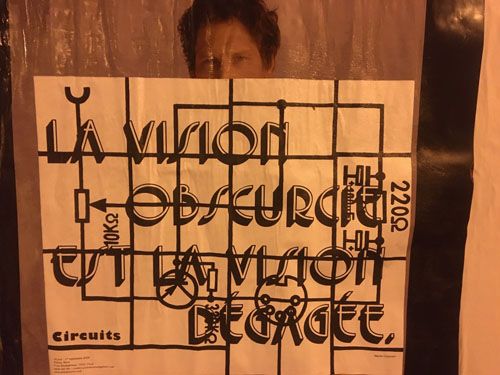 LA VISION
OBSCURCIE
220Ω
10KΩ
EST LA VISION
DÉGAGÉE.
Circuits